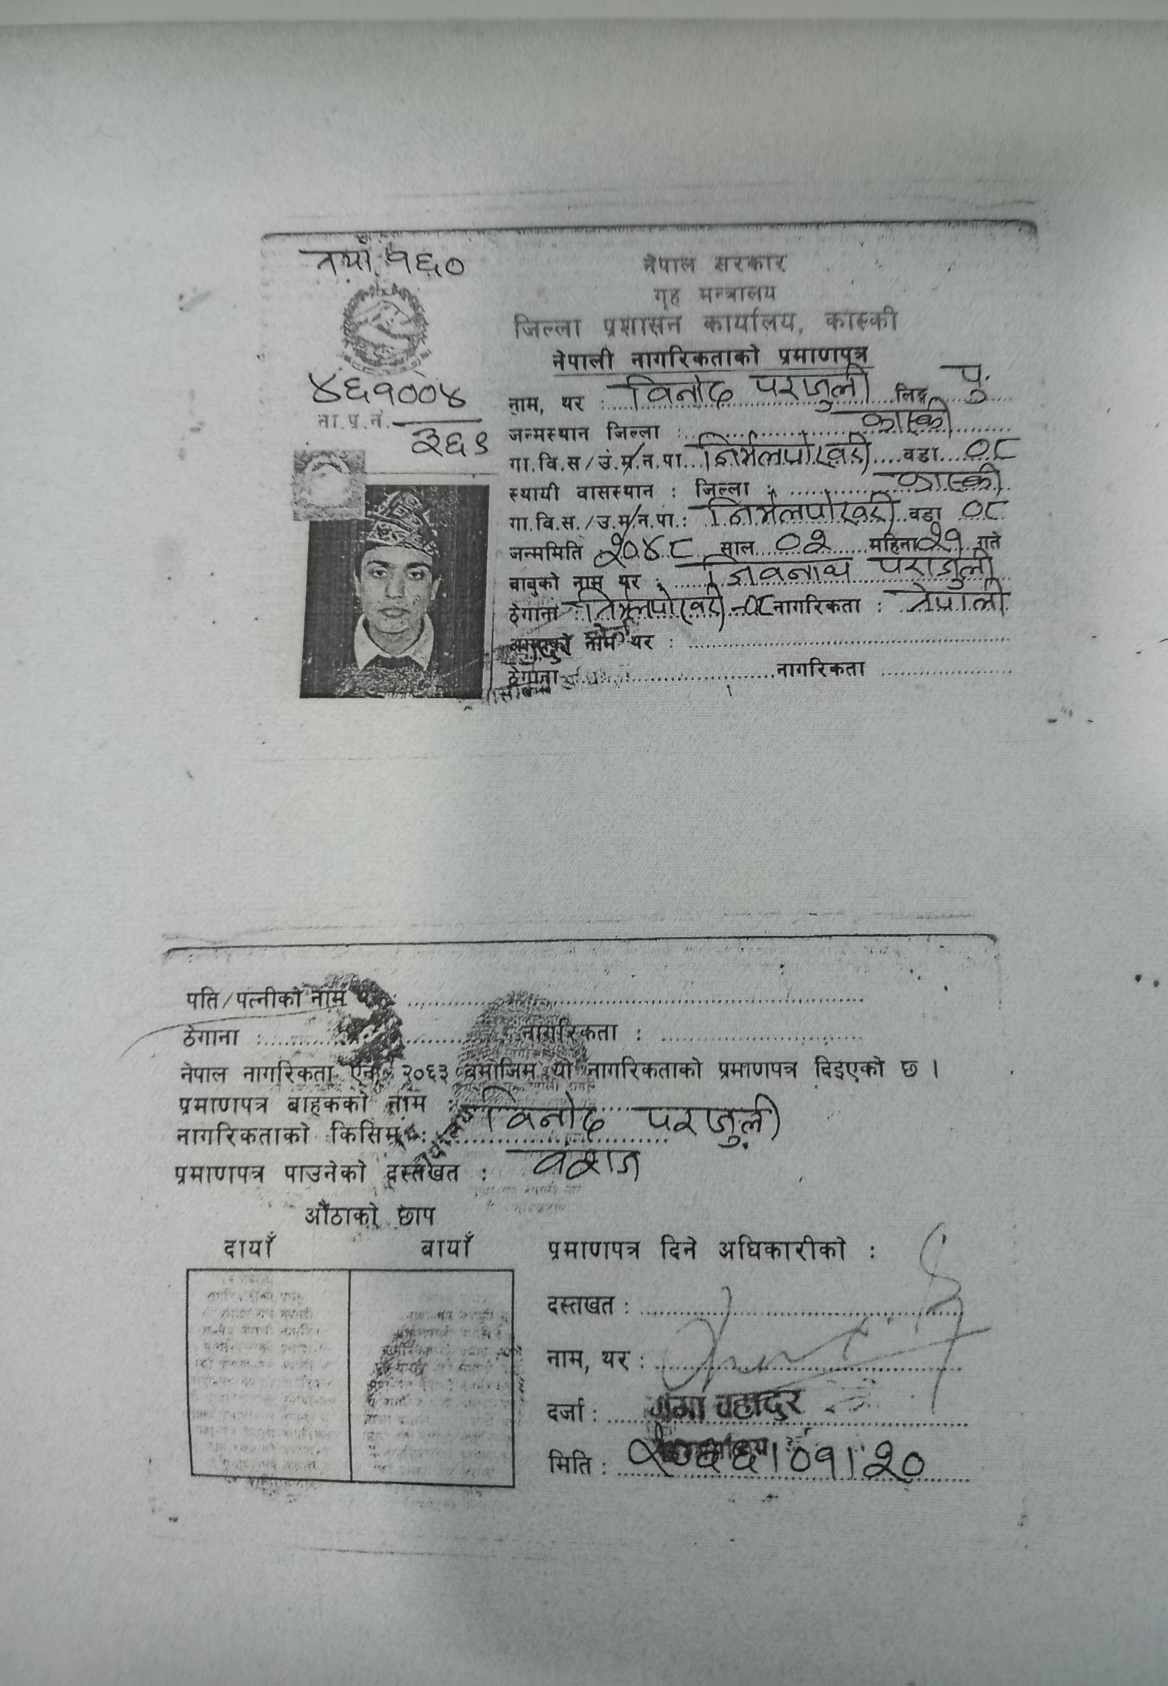 नयाँ १६०
नेपाल सरकार
गृह मन्त्रालय
जिल्ला प्रशासन कार्यालय, कास्की
नेपाली नागरिकताको प्रमाणपत्र
४६१००४
ना.प्र.नं.
३६९
नाम, थर : विनोद पराजुली लिङ्ग पु.
जन्मस्थान जिल्ला : कास्की
गा.वि.स/उ.म/न.पा. निर्मलपोखरी वडा ०८
स्थायी वासस्थान : जिल्ला : कास्की
गा.वि.स./उ.म/न.पा.: निर्मलपोखरी वडा ०८
जन्ममिति २०४८ साल ०२ महिना २१ गते
बाबुको नाम थर : शिवनाथ पराजुली
ठेगाना : निर्मलपोखरी -०८ नागरिकता : नेपाली
नाम थर :
ठेगाना नागरिकता
पति/पत्नीको नाम
ठेगाना : नागरिकता :
नेपाल नागरिकता ऐन २०६३ बमोजिम यो नागरिकताको प्रमाणपत्र दिइएको छ ।
प्रमाणपत्र बाहकको नाम : विनोद पराजुली
नागरिकताको किसिम : वंशज
प्रमाणपत्र पाउनेको दस्तखत :
औंठाको छाप
दायाँ बायाँ
प्रमाणपत्र दिने अधिकारीको :
दस्तखत :
नाम, थर :
दर्जा : गंगा बहादुर
मिति : २०६६।०१।२०